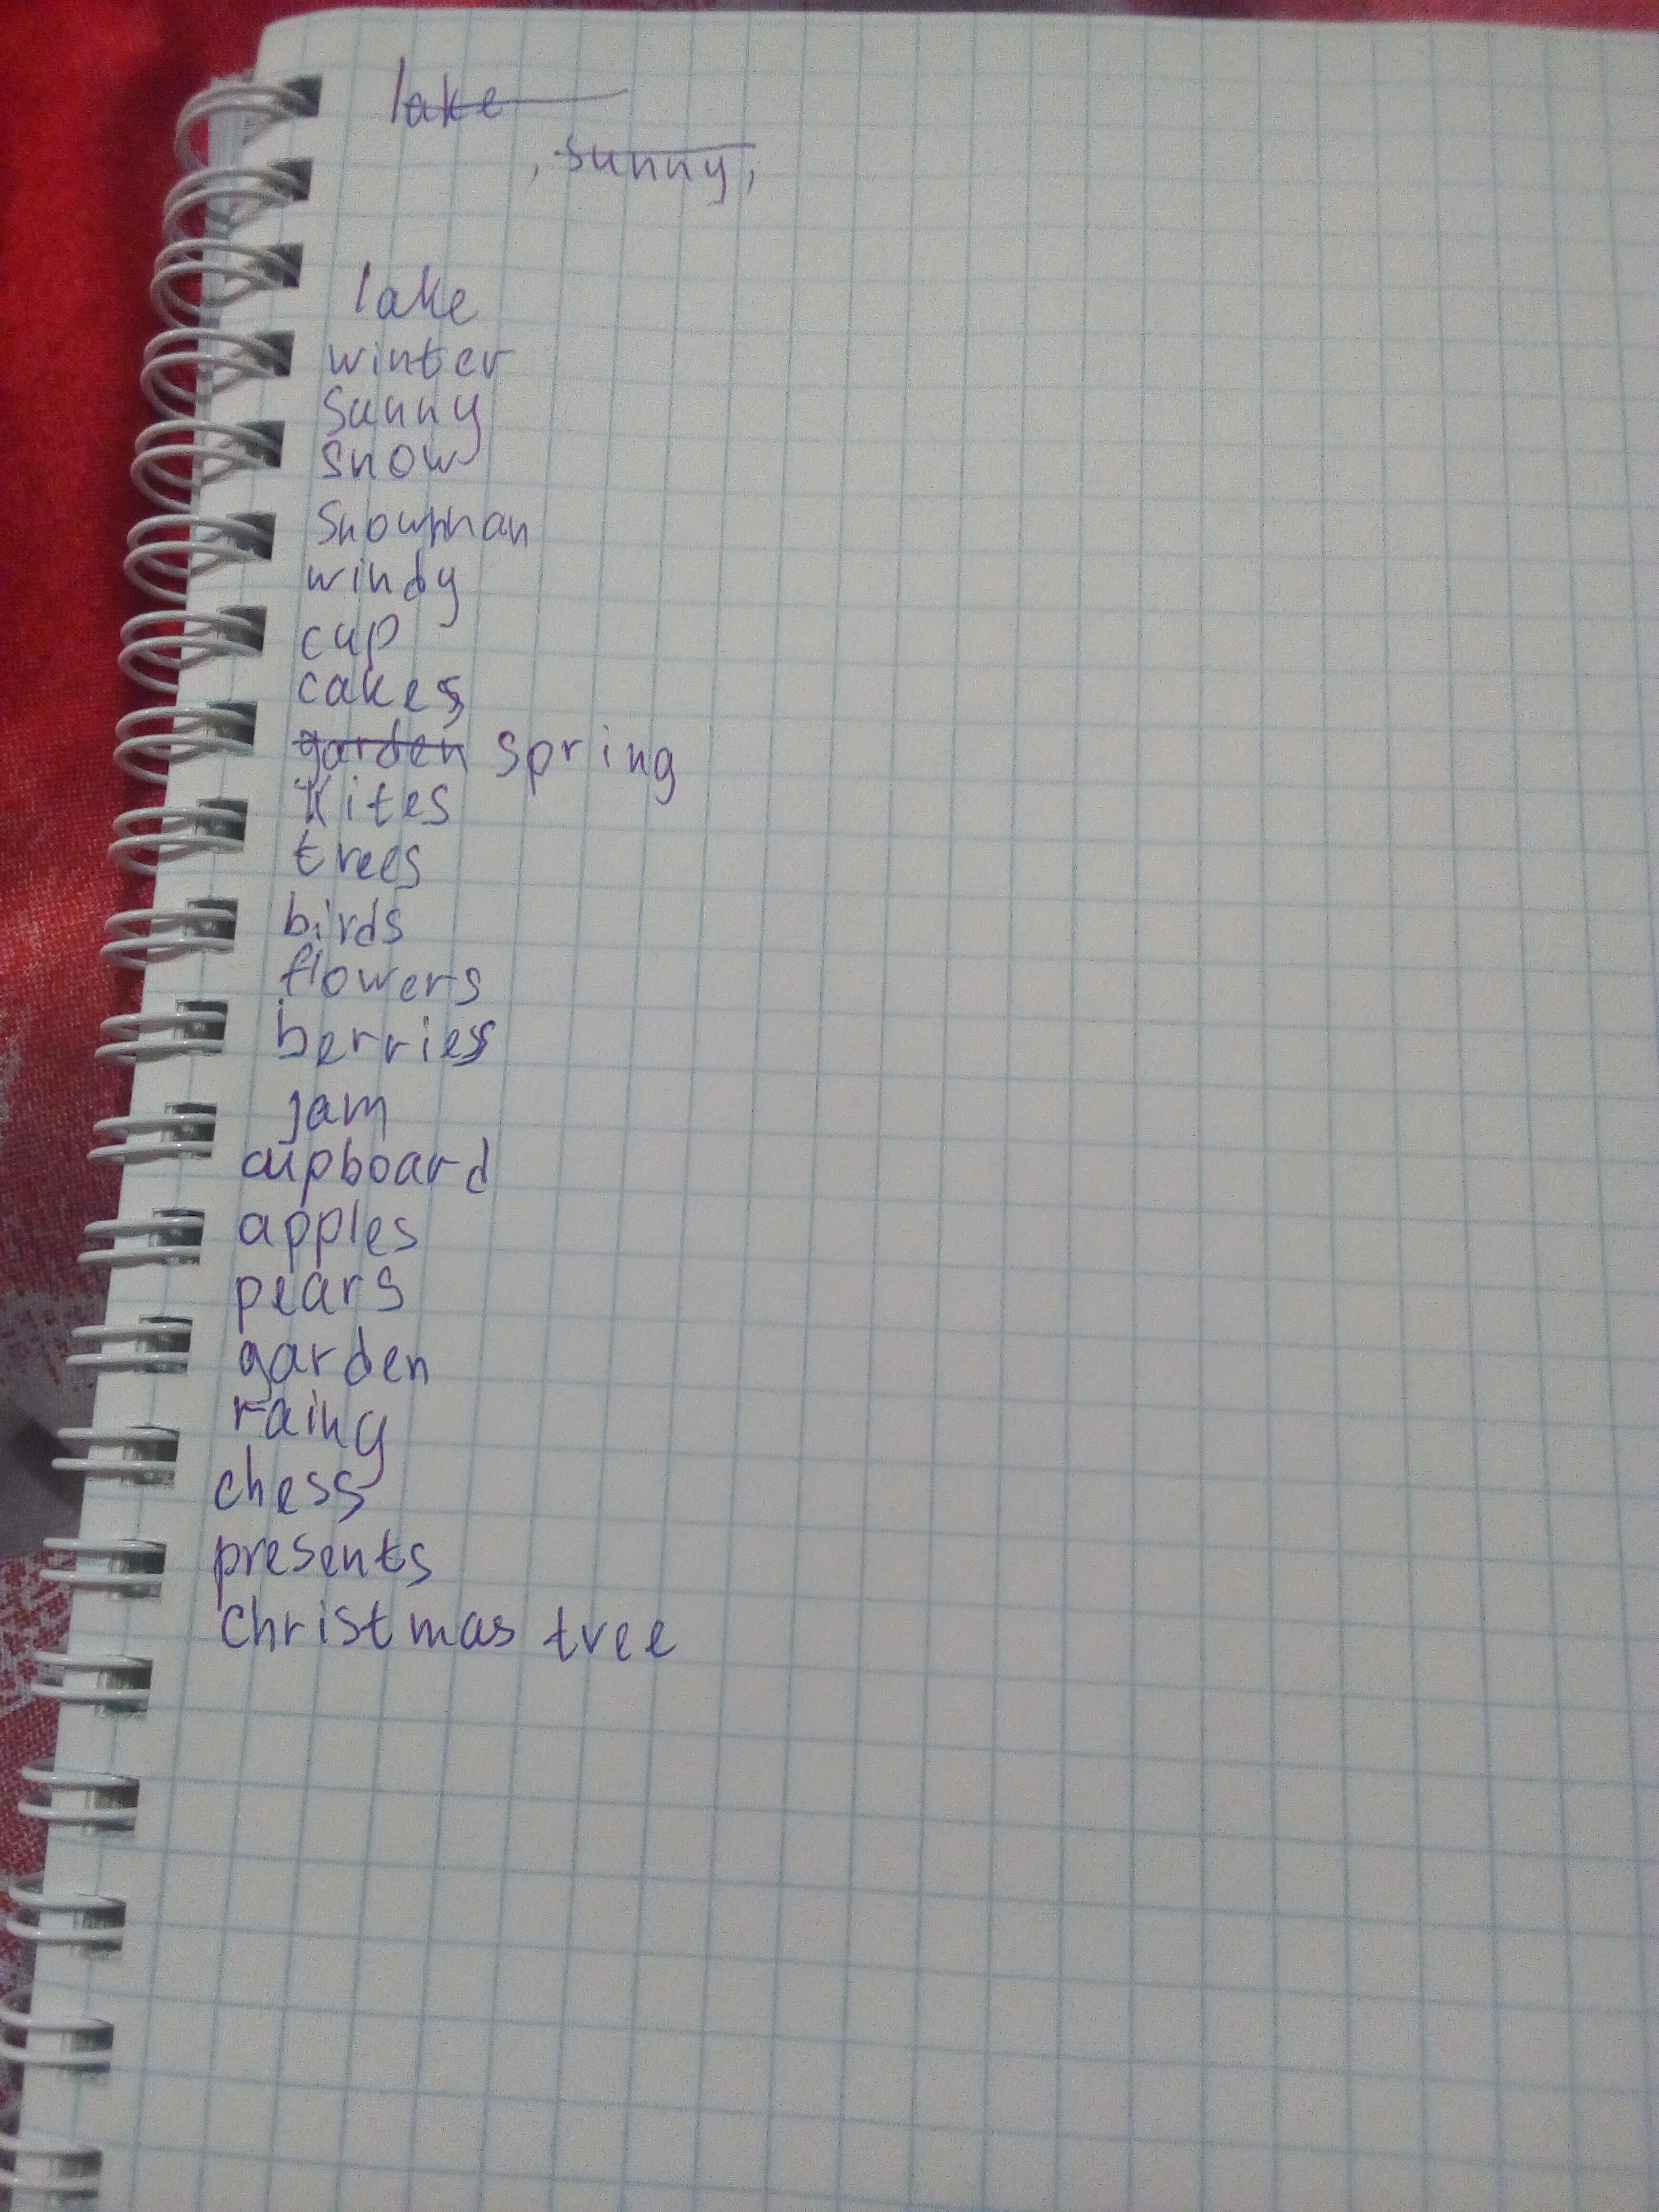 lake
, sunny,
lake
winter
sunny
snow
snowman
windy
cup
cakes
garden spring
kites
trees
birds
flowers
berries
jam
cupboard
apples
pears
garden
rainy
chess
presents
christmas tree